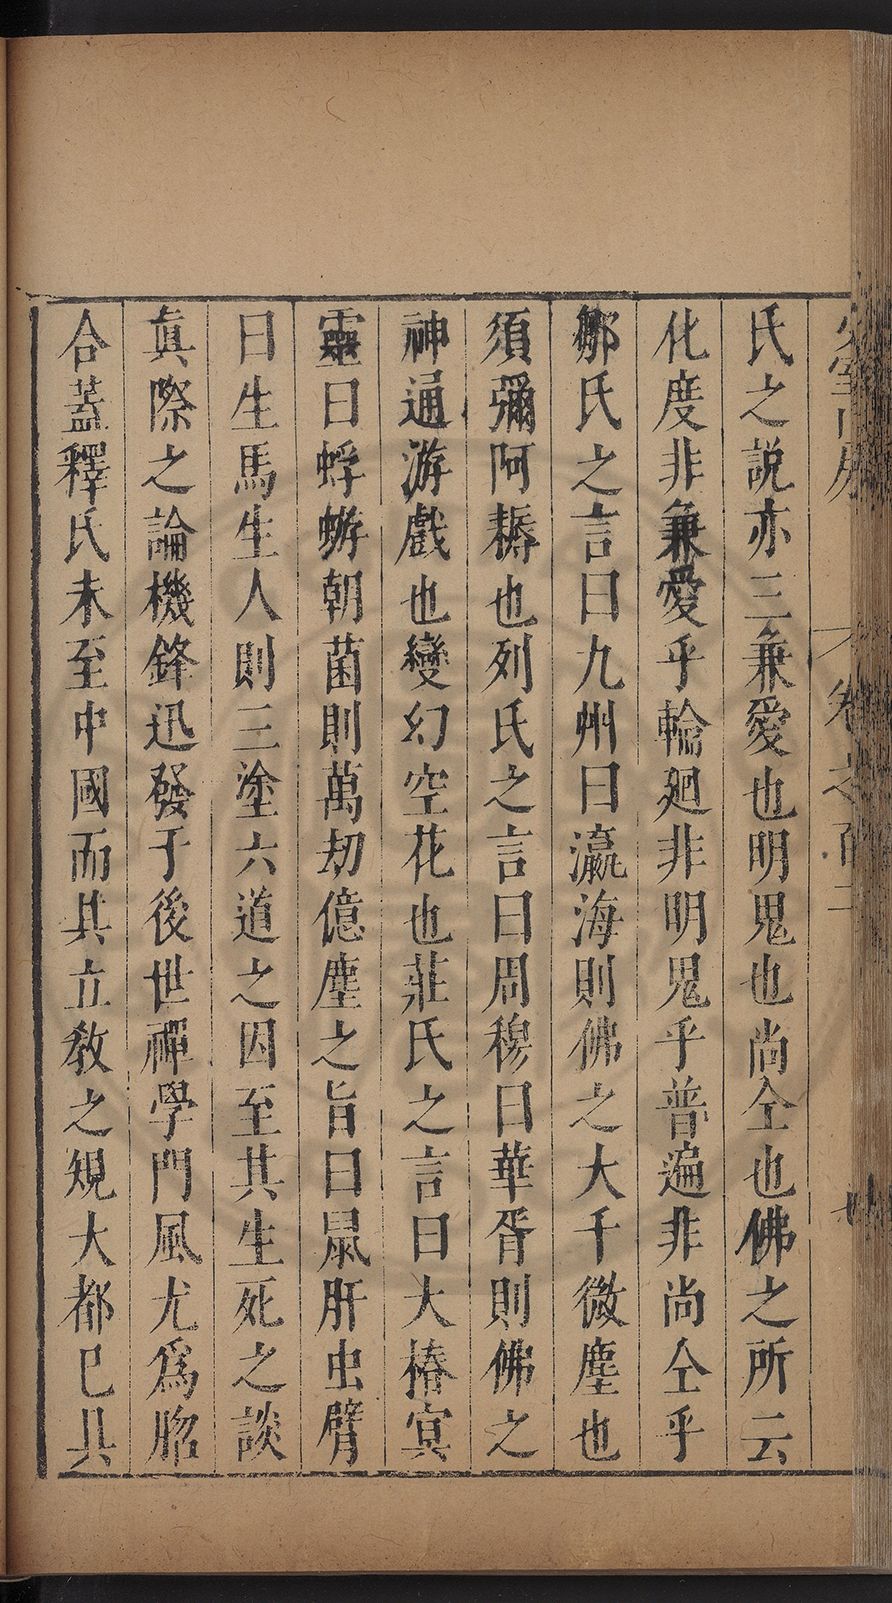 少室山房
卷之百二
氏之說亦三兼愛也明鬼也尚仝也佛之所云
化度非兼愛乎輪廻非明鬼乎普遍非尚仝乎
鄒氏之言曰九州曰瀛海則佛之大千微塵也
須彌阿耨也列氏之言曰周穆曰華胥則佛之
神通游戲也變幻空花也莊氏之言曰大椿㝠
靈曰蜉蝣朝菌則萬刧億塵之旨曰鼠肝虫臂
曰生馬生人則三塗六道之因至其生死之談
眞際之論機鋒迅發于後世禪學門風尤爲脗
合蓋釋氏未至中國而其立教之規大都已具